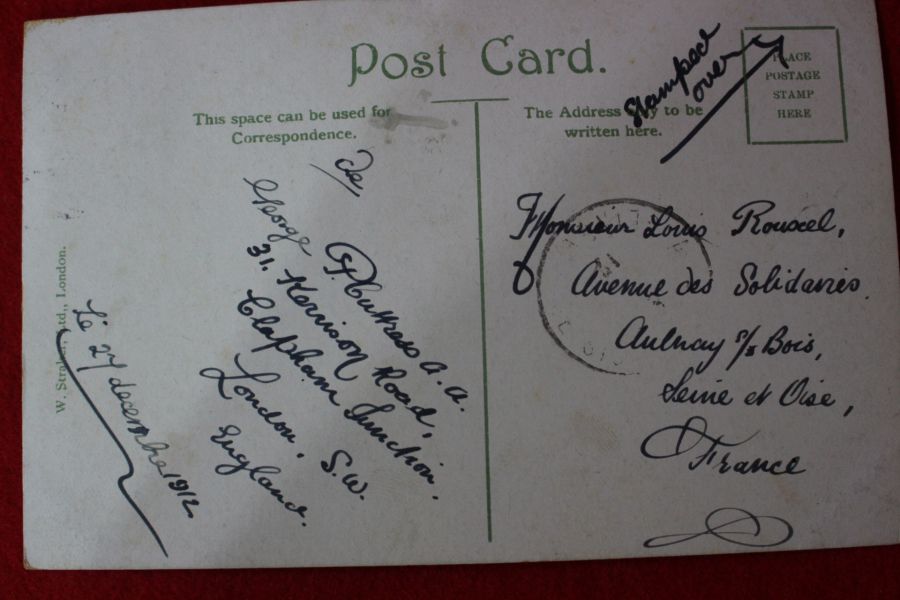 Post Card.
This space can be used for
Correspondence.
The Address only to be
written here.
Stamped
over
PLACE
POSTAGE
STAMP
HERE
de
George
31. Kerrison Road,
Clapham Junction.
London. S.W.
England.
Le 27 decembre 1912.
W. Straker, Ltd., London.
Monsieur Louis Rouxel,
Avenue des Solidaires.
Aulnay s/s Bois,
Seine et Oise,
France